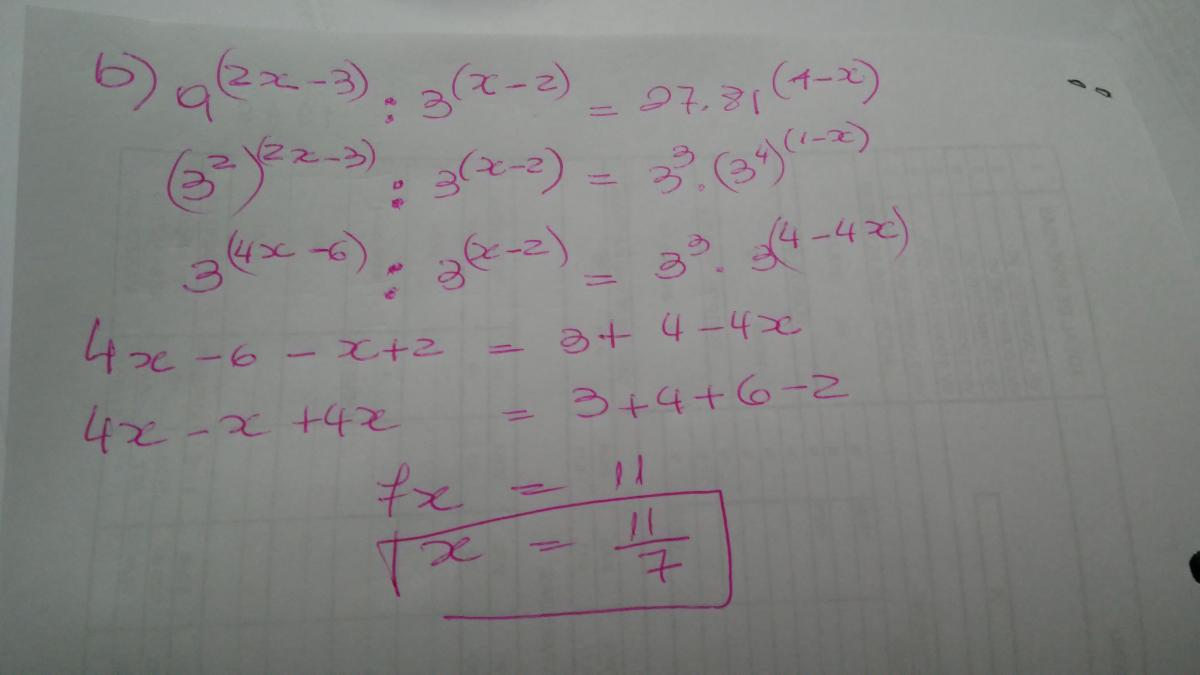 b) 9^(2x-3) : 3^(x-2) = 27.81^(1-x)
(3^2)^(2x-3) : 3^(x-2) = 3^3.(3^4)^(1-x)
3^(4x-6) : 3^(x-2) = 3^3.3^(4-4x)
4x-6-x+2 = 3+4-4x
4x-x+4x = 3+4+6-2
7x = 11
x = 11/7